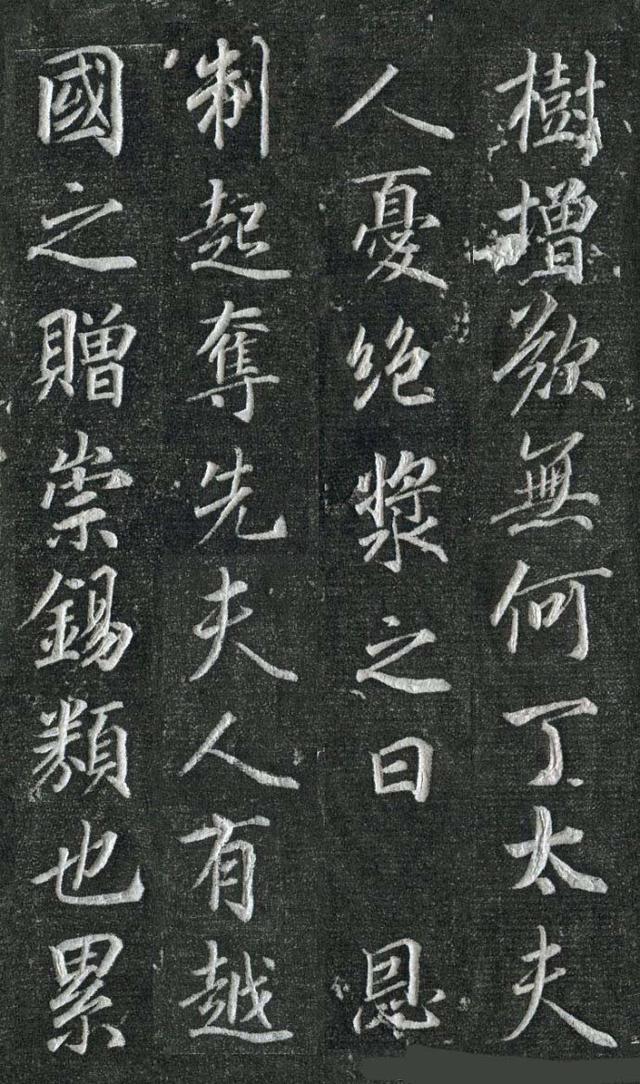 樹增歎無何丁太夫
人憂絶漿之日恩
制起奪先夫人有越
國之贈崇錫類也累